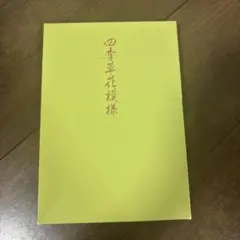 四季草花模様